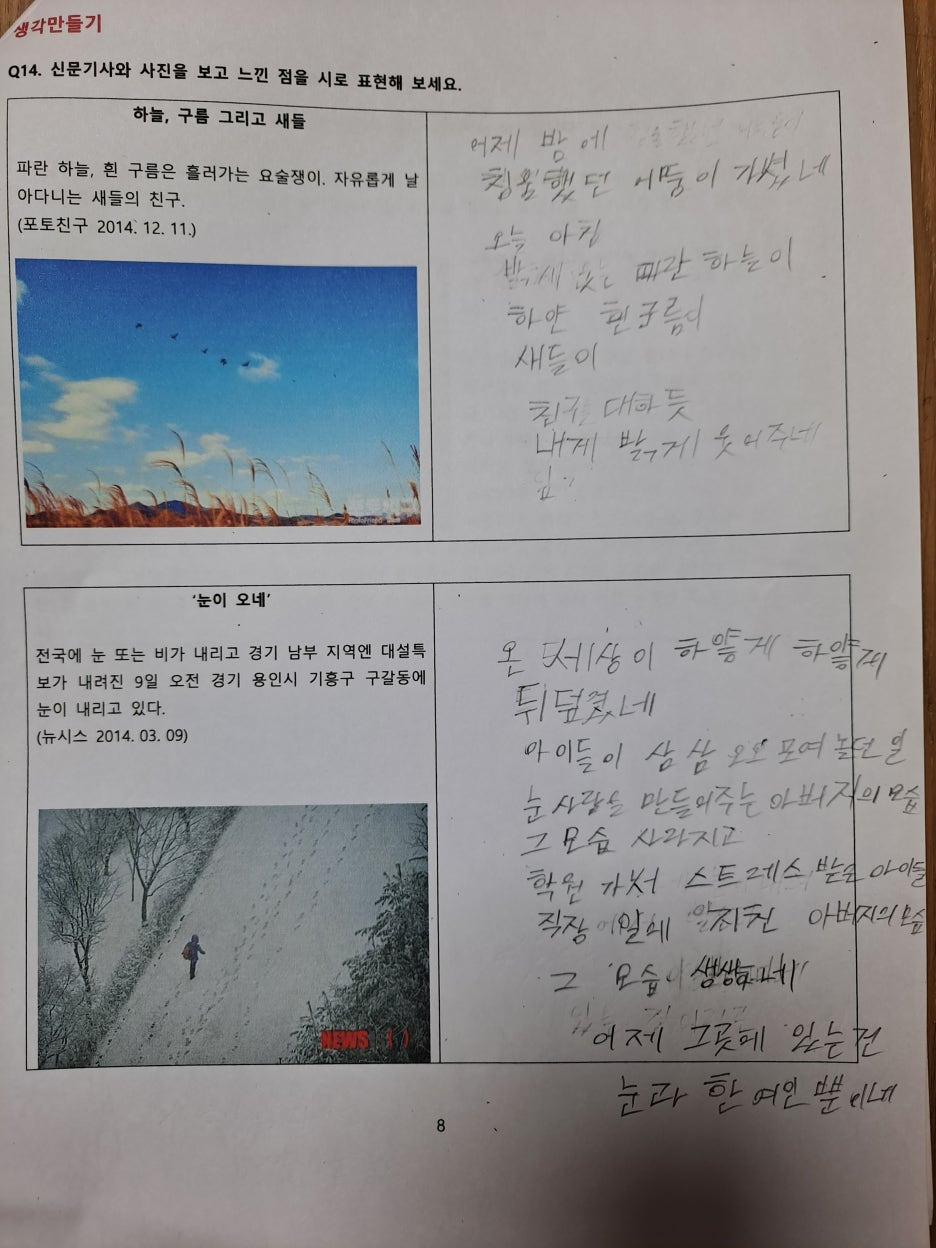 생각만들기
Q14. 신문기사와 사진을 보고 느낀 점을 시로 표현해 보세요.
하늘, 구름 그리고 새들
파란 하늘, 흰 구름은 흘러가는 요술쟁이. 자유롭게 날
아다니는 새들의 친구.
(포토친구 2014. 12. 11.)
어제 밤에
침울했던 어둠이 가셨네
오늘 아침
파란 하늘이
하얀 흰구름이
새들이
친구 대하듯
내게 밝게 웃어주네
'눈이 오네'
전국에 눈 또는 비가 내리고 경기 남부 지역엔 대설특
보가 내려진 9일 오전 경기 용인시 기흥구 구갈동에
눈이 내리고 있다.
(뉴시스 2014. 03. 09)
NEWS
온 세상이 하얗게 하얗게
뒤덮였네
아이들이 삼삼오오 모여 놀던 일
눈사람을 만들어주는 아버지의 모습
그 모습 사라지고
학원 가서 스트레스 받은 아이들
직장 일에 지친 아버지의 모습
그 모습 생생하네
어제 그곳에 있는 건
눈과 한 여인 뿐이네
8